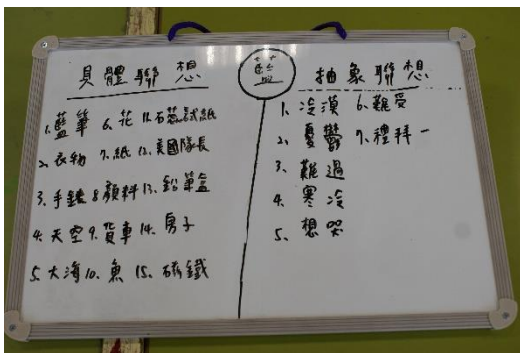 具體聯想
藍
抽象聯想
1. 藍筆 6. 花 11. 石蕊試紙
2. 衣物 7. 紙 12. 美國隊長
3. 手錶 8. 顏料 13. 鉛筆盒
4. 天空 9. 貨車 14. 房子
5. 大海 10. 魚 15. 磁鐵
1. 冷漠 6. 難受
2. 憂鬱 7. 禮拜一
3. 難過
4. 寒冷
5. 想哭